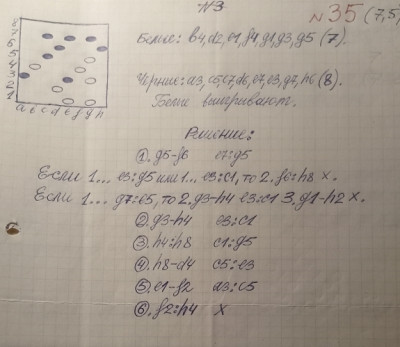 N3
N35 (7,5)
8
7
6
5
4
3
2
1
a b c d e f g h
Белые: в4, d2, e1, f4, g1, g3, g5 (7).
Черные: a3, c5, c7, d6, e7, e3, g7, h6 (8).
Белые выигрывают.
Решение:
①. g5-f6 e7:g5
Если 1... e3:g5 или 1... e3:c1, то 2. f6:h8 х.
Если 1... g7:e5, то 2. g3-h4 e3:c1 3. g1-h2 х.
②. g3-h4 e3:c1
③. h4:h8 c1:g5
④. h8-d4 c5:e3
⑤. e1-f2 a3:c5
⑥. f2:h4 х